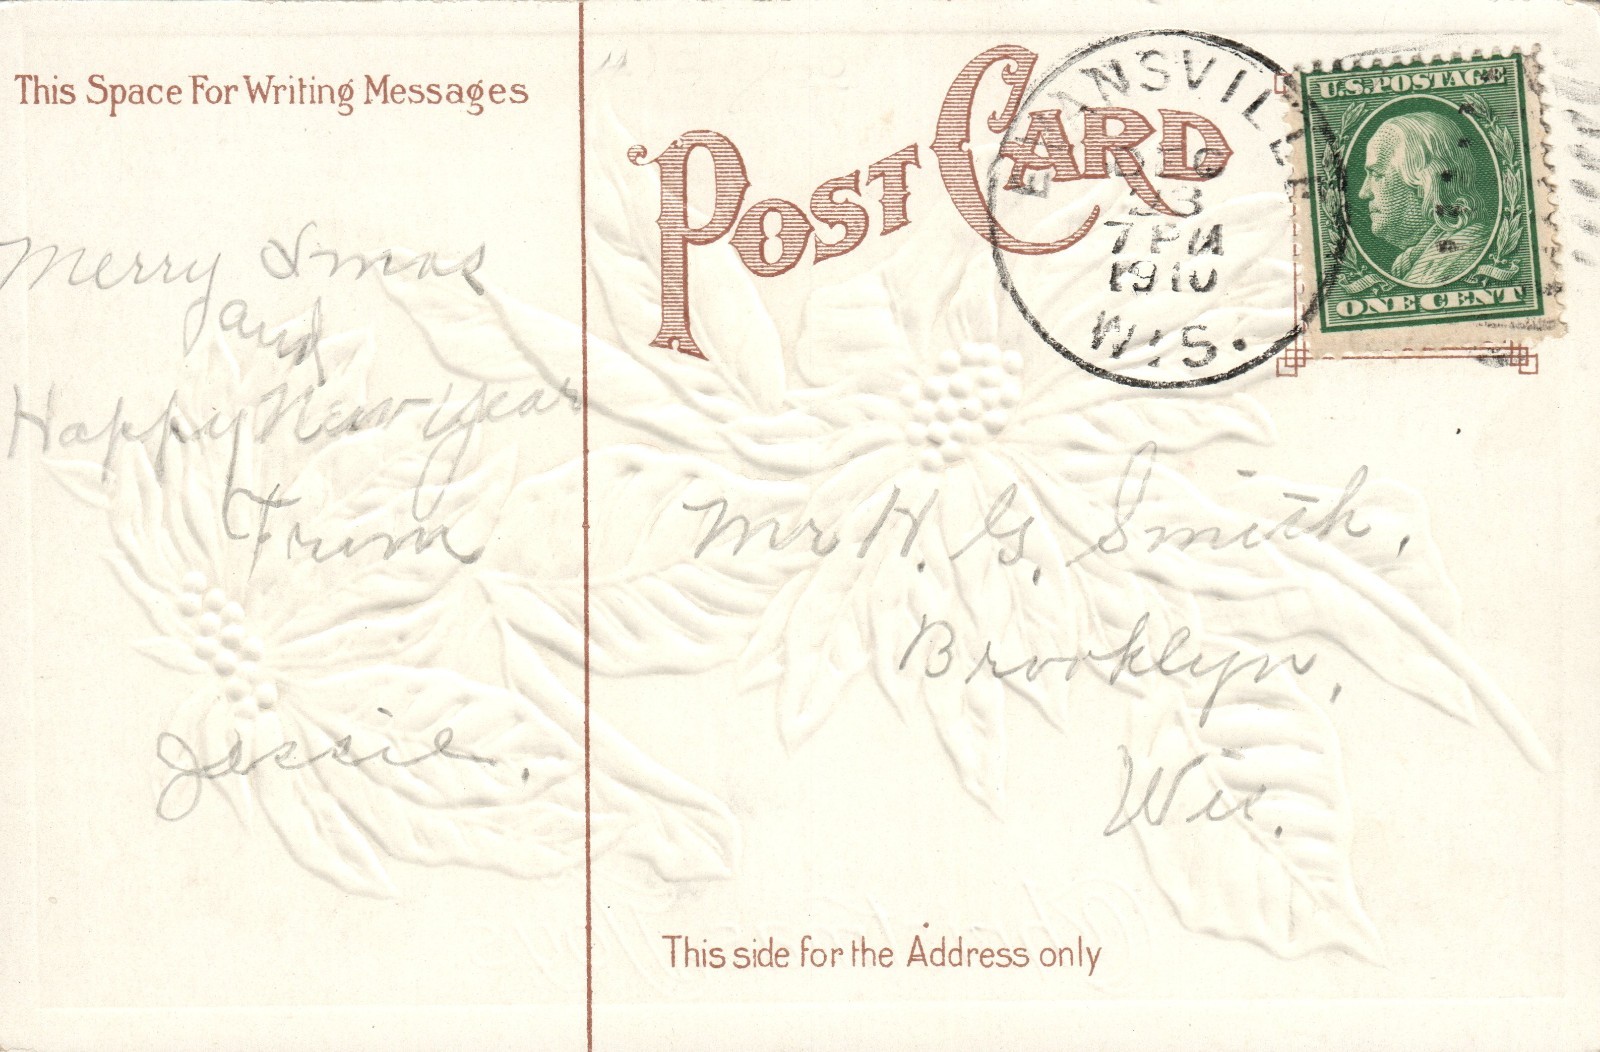 This Space For Writing Messages
Merry Xmas
and
Happy New Year
From
Jessie.
POST CARD
EVANSVILLE
DEC
23
7 PM
1910
WIS.
U.S. POSTAGE
ONE CENT
Mr H. G. Smith,
Brooklyn,
Wis.
This side for the Address only